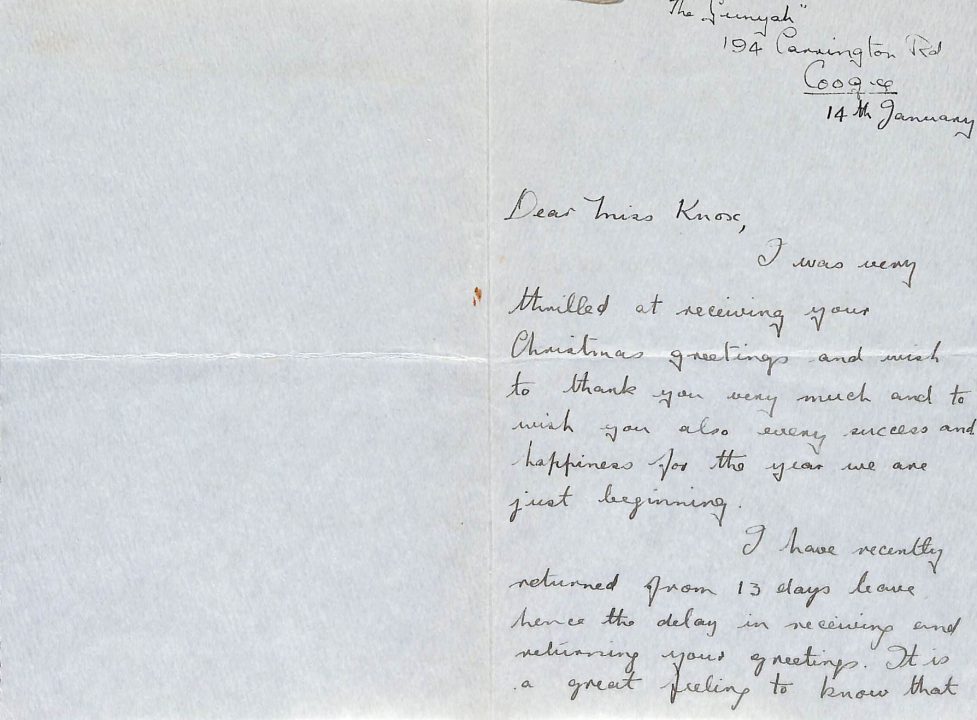 The "Gunyah"
194 Carrington Rd
Coogee
14th January
Dear Miss Knox,
I was very
thrilled at receiving your
Christmas greetings and wish
to thank you very much and to
wish you also every success and
happiness for the year we are
just beginning.
I have recently
returned from 13 days leave
hence the delay in receiving and
returning your greetings. It is
a great feeling to know that